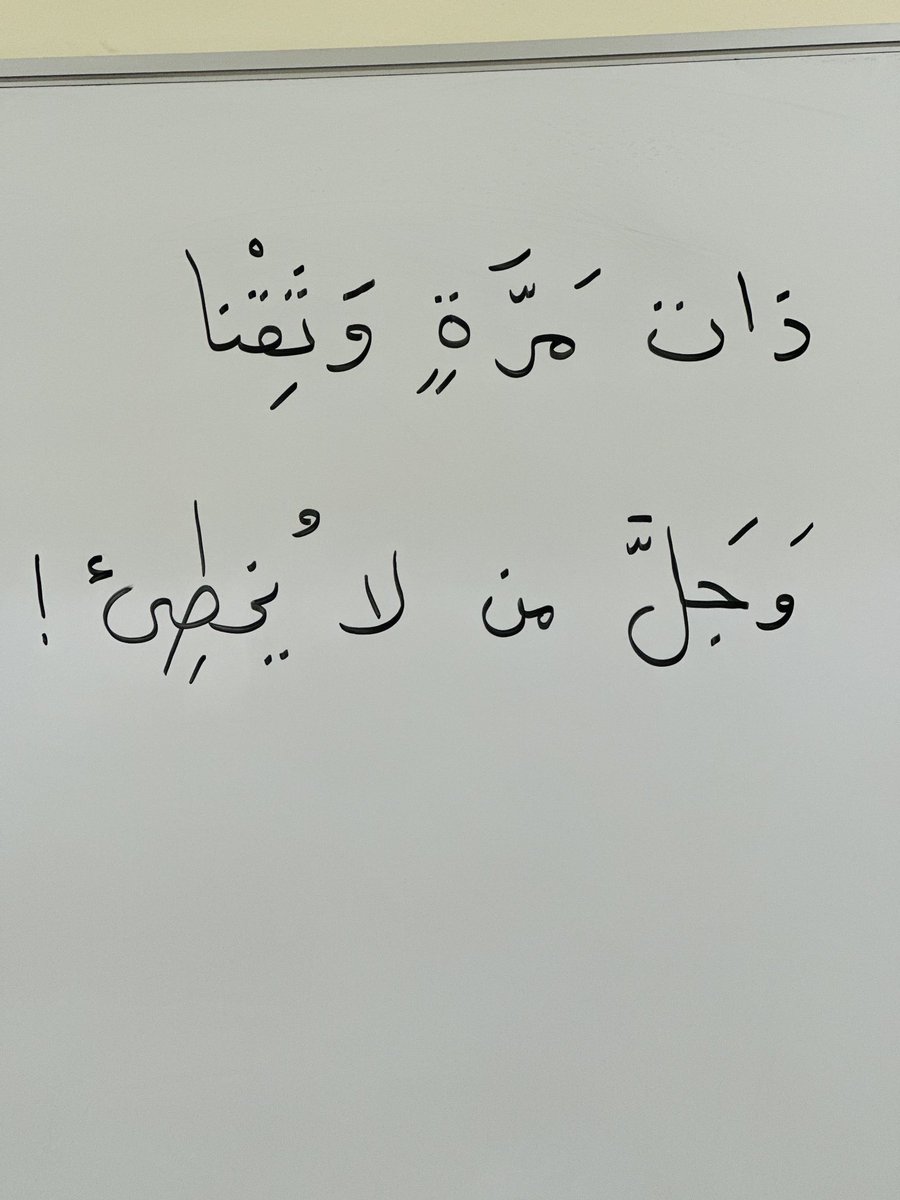 ذات مَرَّةٍ وَثِقْنا
وَجَلَّ من لا يُخطِئ !